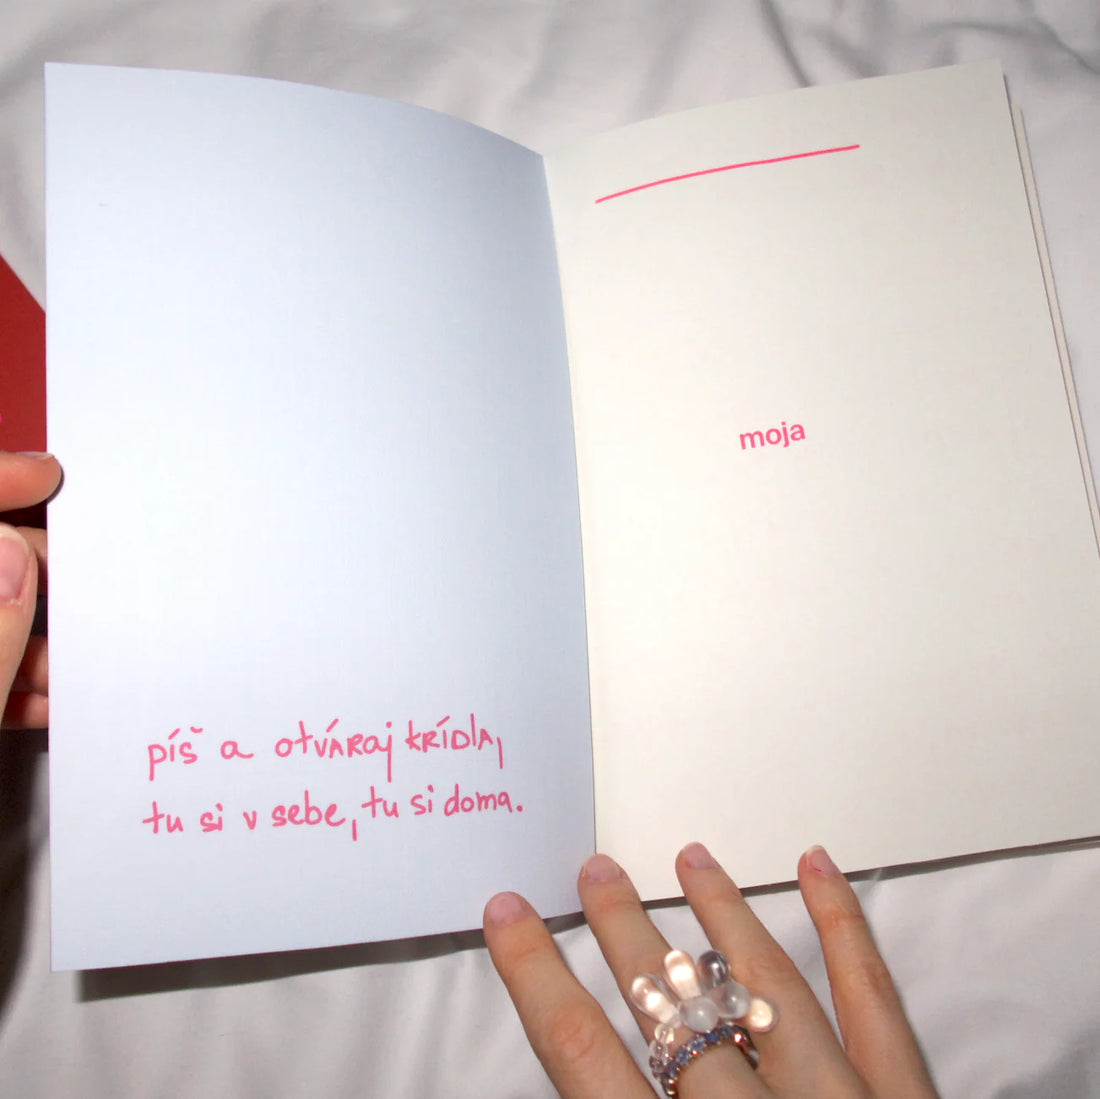 píš a otváraj krídla,
tu si v sebe, tu si doma.
moja